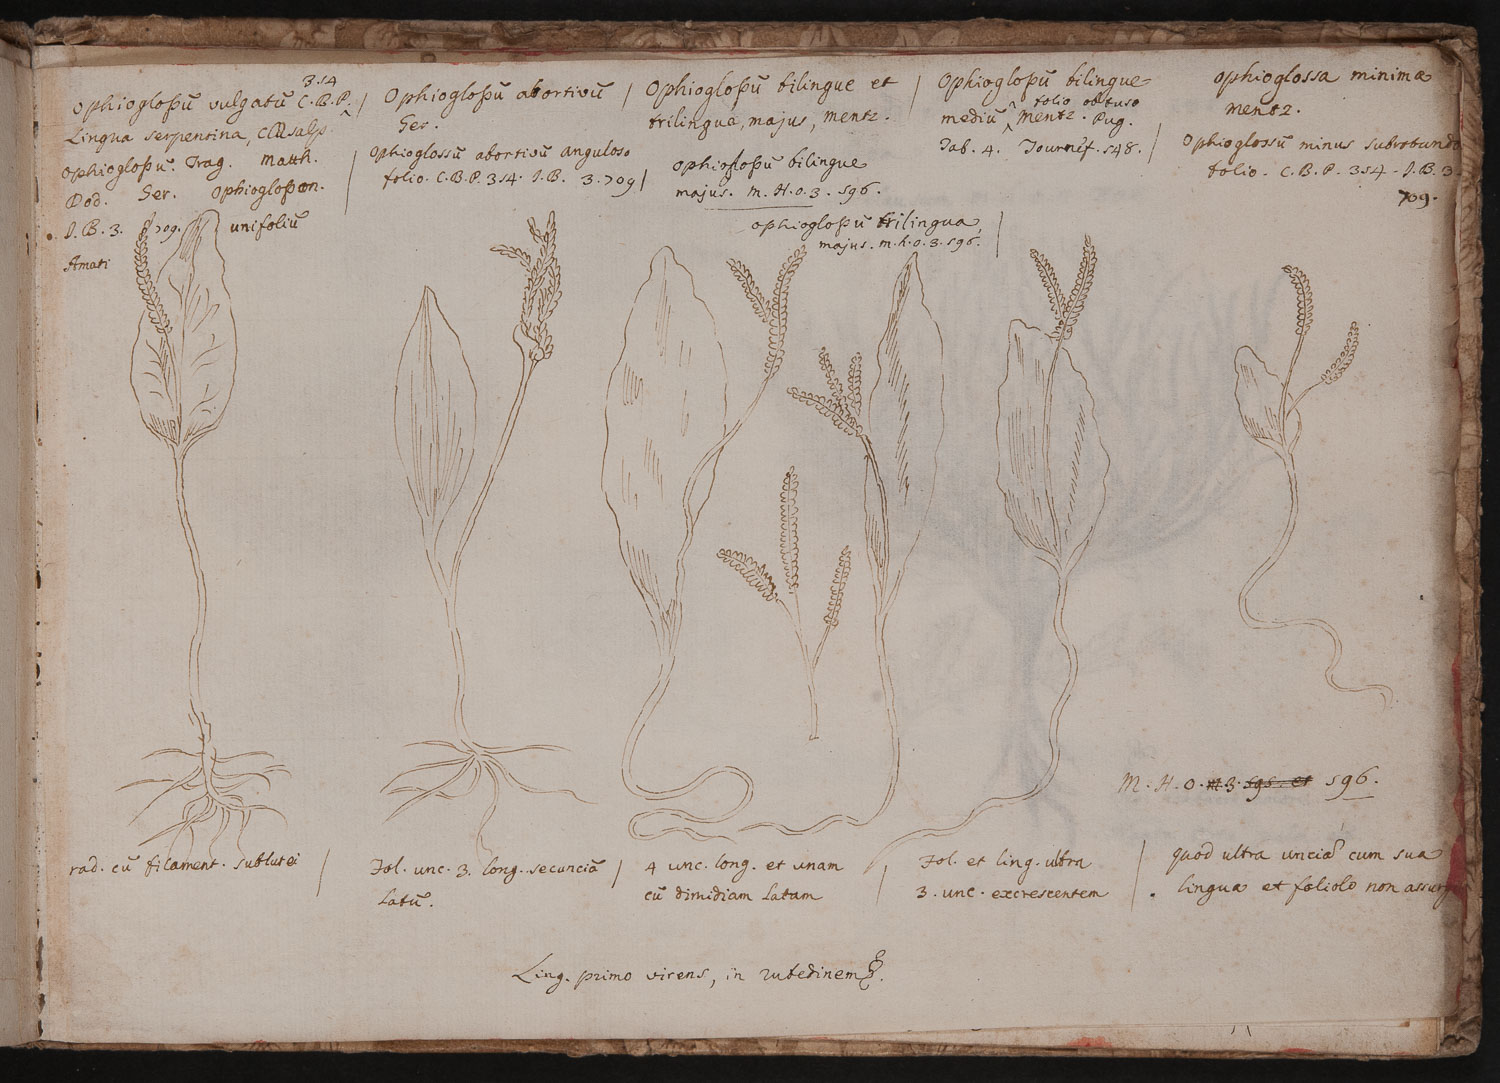 Ophioglossū vulgatū C.B.P. 354
Lingua serpentina, Cæsalp.
Ophioglossū. Trag. Matth.
Dod. Ger. Ophioglosson.
I.B.3. 709. unifoliū
Amati
Ophioglossū abortivū
Ger.
Ophioglossū abortivū anguloso
folio. C.B.P. 354. I.B. 3.709
Ophioglossū bilingue et
trilingua, majus, mentz.
Ophioglossū bilingue
majus. M.H.O.3. 596.
Ophioglossū trilingua,
majus. m.h.o.3.596.
Ophioglossū bilingue
mediū, folio obtuso mentz. Pug.
Tab. 4. Tournef. 548.
Ophioglossa minima
mentz.
Ophioglossū minus subrotundo
folio. C.B.P. 354. I.B.3.
709.
M.H.O. 3. 595. et 596.
rad. cū filament. sublutei
Fol. unc. 3. long. sescunciā
latū.
4 unc. long. et unam
cū dimidiam latam
Fol. et ling. ultra
3. unc. excrescentem
quod ultra unciā cum sua
lingua et foliolo non
Ling. primo virens, in rubedinem